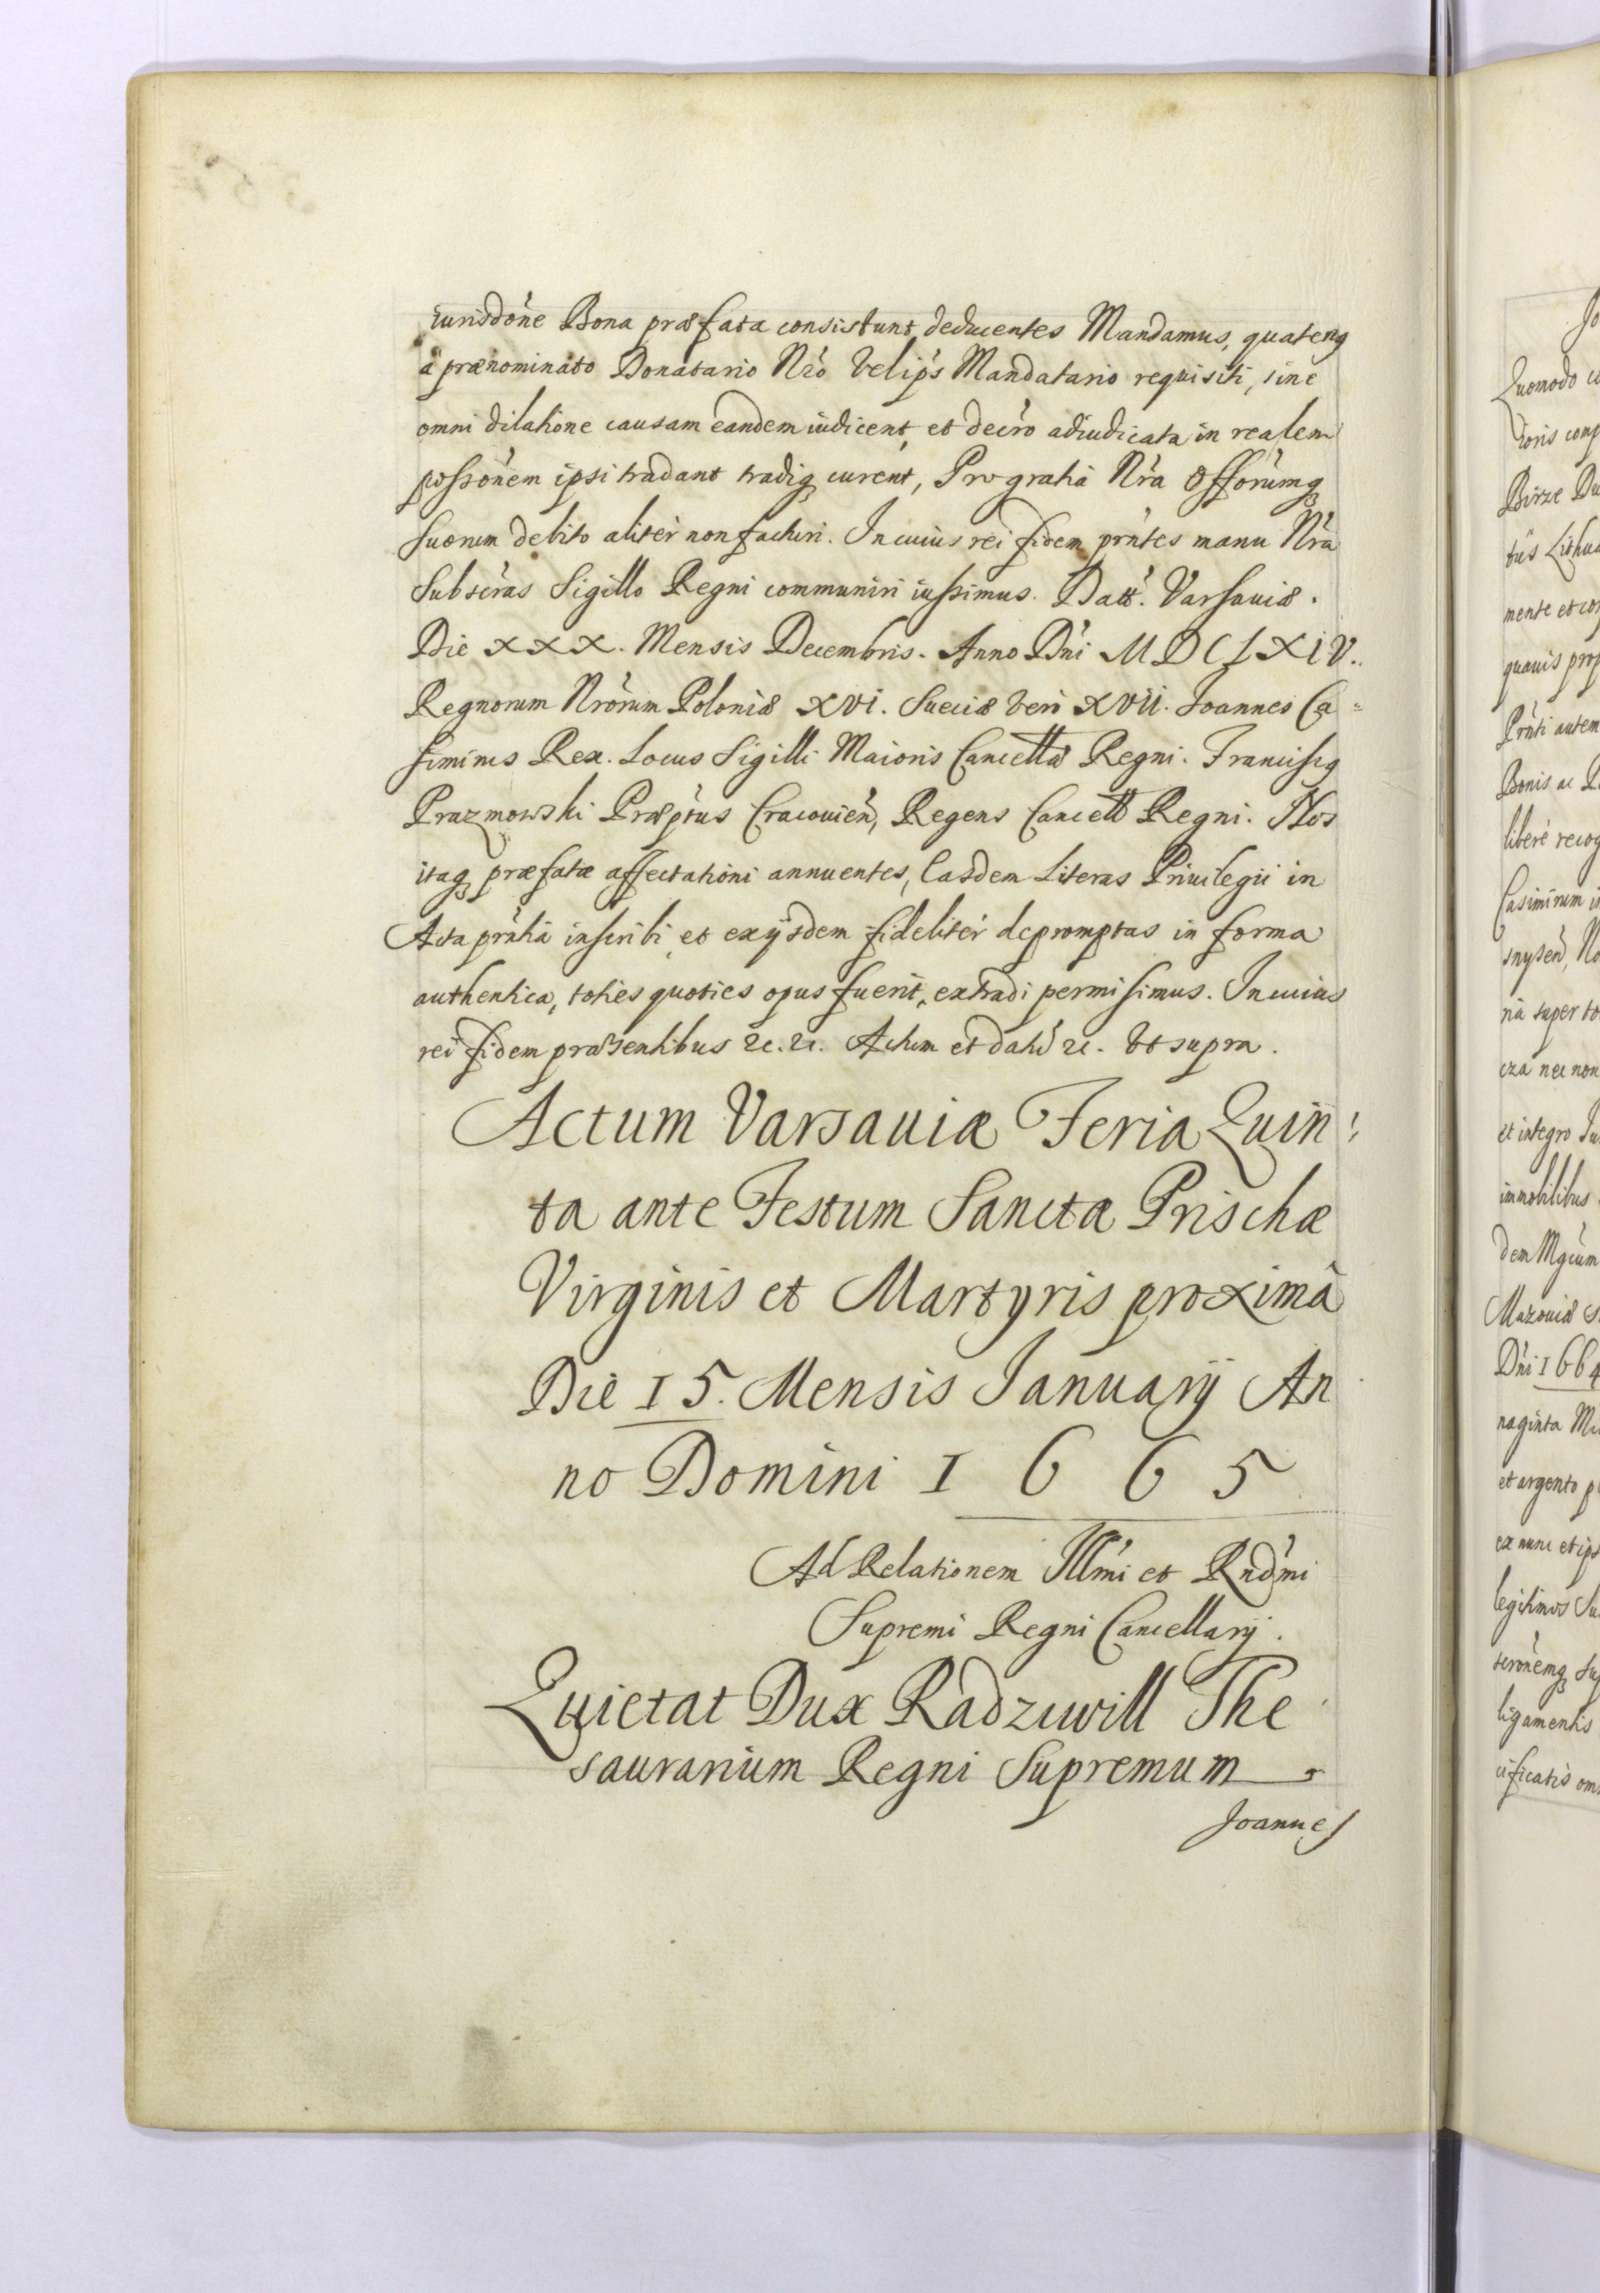 iurisdóne Bona præfata consistunt, deducentes Mandamus, quatenq
à prænominato Donatario Nró vel ipśs Mandatario requisiti, sine
omni dilatione causam eandem iudicent, et decró adiudicata in realem
possónem ipsi tradant tradiq curent, Pro gratia Nŕa Offorúmq
suorum debito aliter non facturi. In cuius rei fidem prńtes manu Nŕa
Subscŕas Sigillo Regni communiri iussimus. Datt. Varsauiæ.
Die XXX. Mensis Decembris. Anno Dńi MDCLXIV.
Regnorum Nrórum Poloniæ XVI. Sueciæ vero XVII. Joannes Ca=
simirus Rex. Locus Sigilli Maioris Cancellæ Regni. Franciscq
Prazmowski Præptús Cracouień, Regens Cancell Regni. Nos
itaq præfatæ affectationi annuentes, Easdem Literas Priuilegii in
Acta prńtia inscribi, et ex ijsdem fideliter depromptas in forma
authentica, toties quoties opus fuerit, extradi permisimus. In cuius
rei fidem præsentibus &c. &c. Actum et datú &c. vt supra.
Actum Varsauiæ Feria Quin
ta ante Festum Sanctæ Prischæ
Virginis et Martyris proximâ
Die 15. Mensis Januarij An
no Domini 1665
Ad Relationem Illmi et Rndmi
Supremi Regni Cancellarij.
Quietat Dux Radziwill The
saurarium Regni Supremum
Joannes
Quomodo
Birze Du
mente et con
quauis prop
Prńti autem
Bonis ac
libere recog
Casimirum
ria super to
cza nec non
et integro
immobilibus
dem Mgcum
Mazouiæ
Dńi 1664
naginta
et argento
ex nunc et ips
legitimos
ligamentis